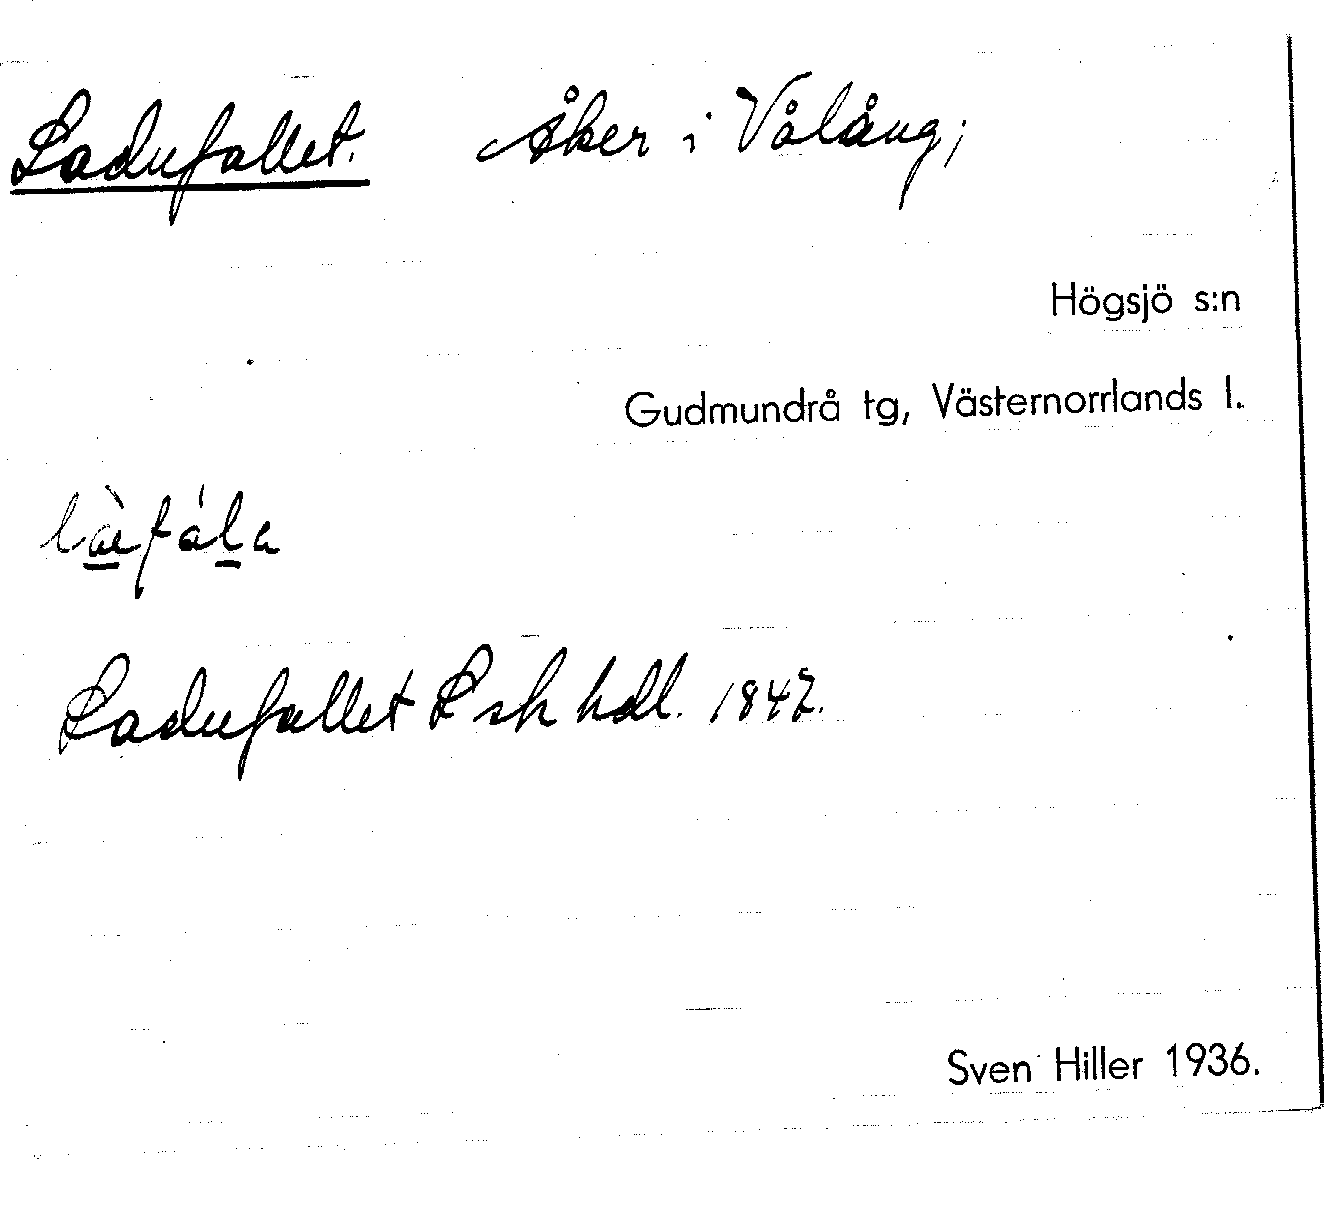 Ladufallet. Åker i Vålång;
Högsjö s:n
Gudmundrå tg, Västernorrlands l.
Ladufallet Lsk hdl. 1847.
Sven Hiller 1936.